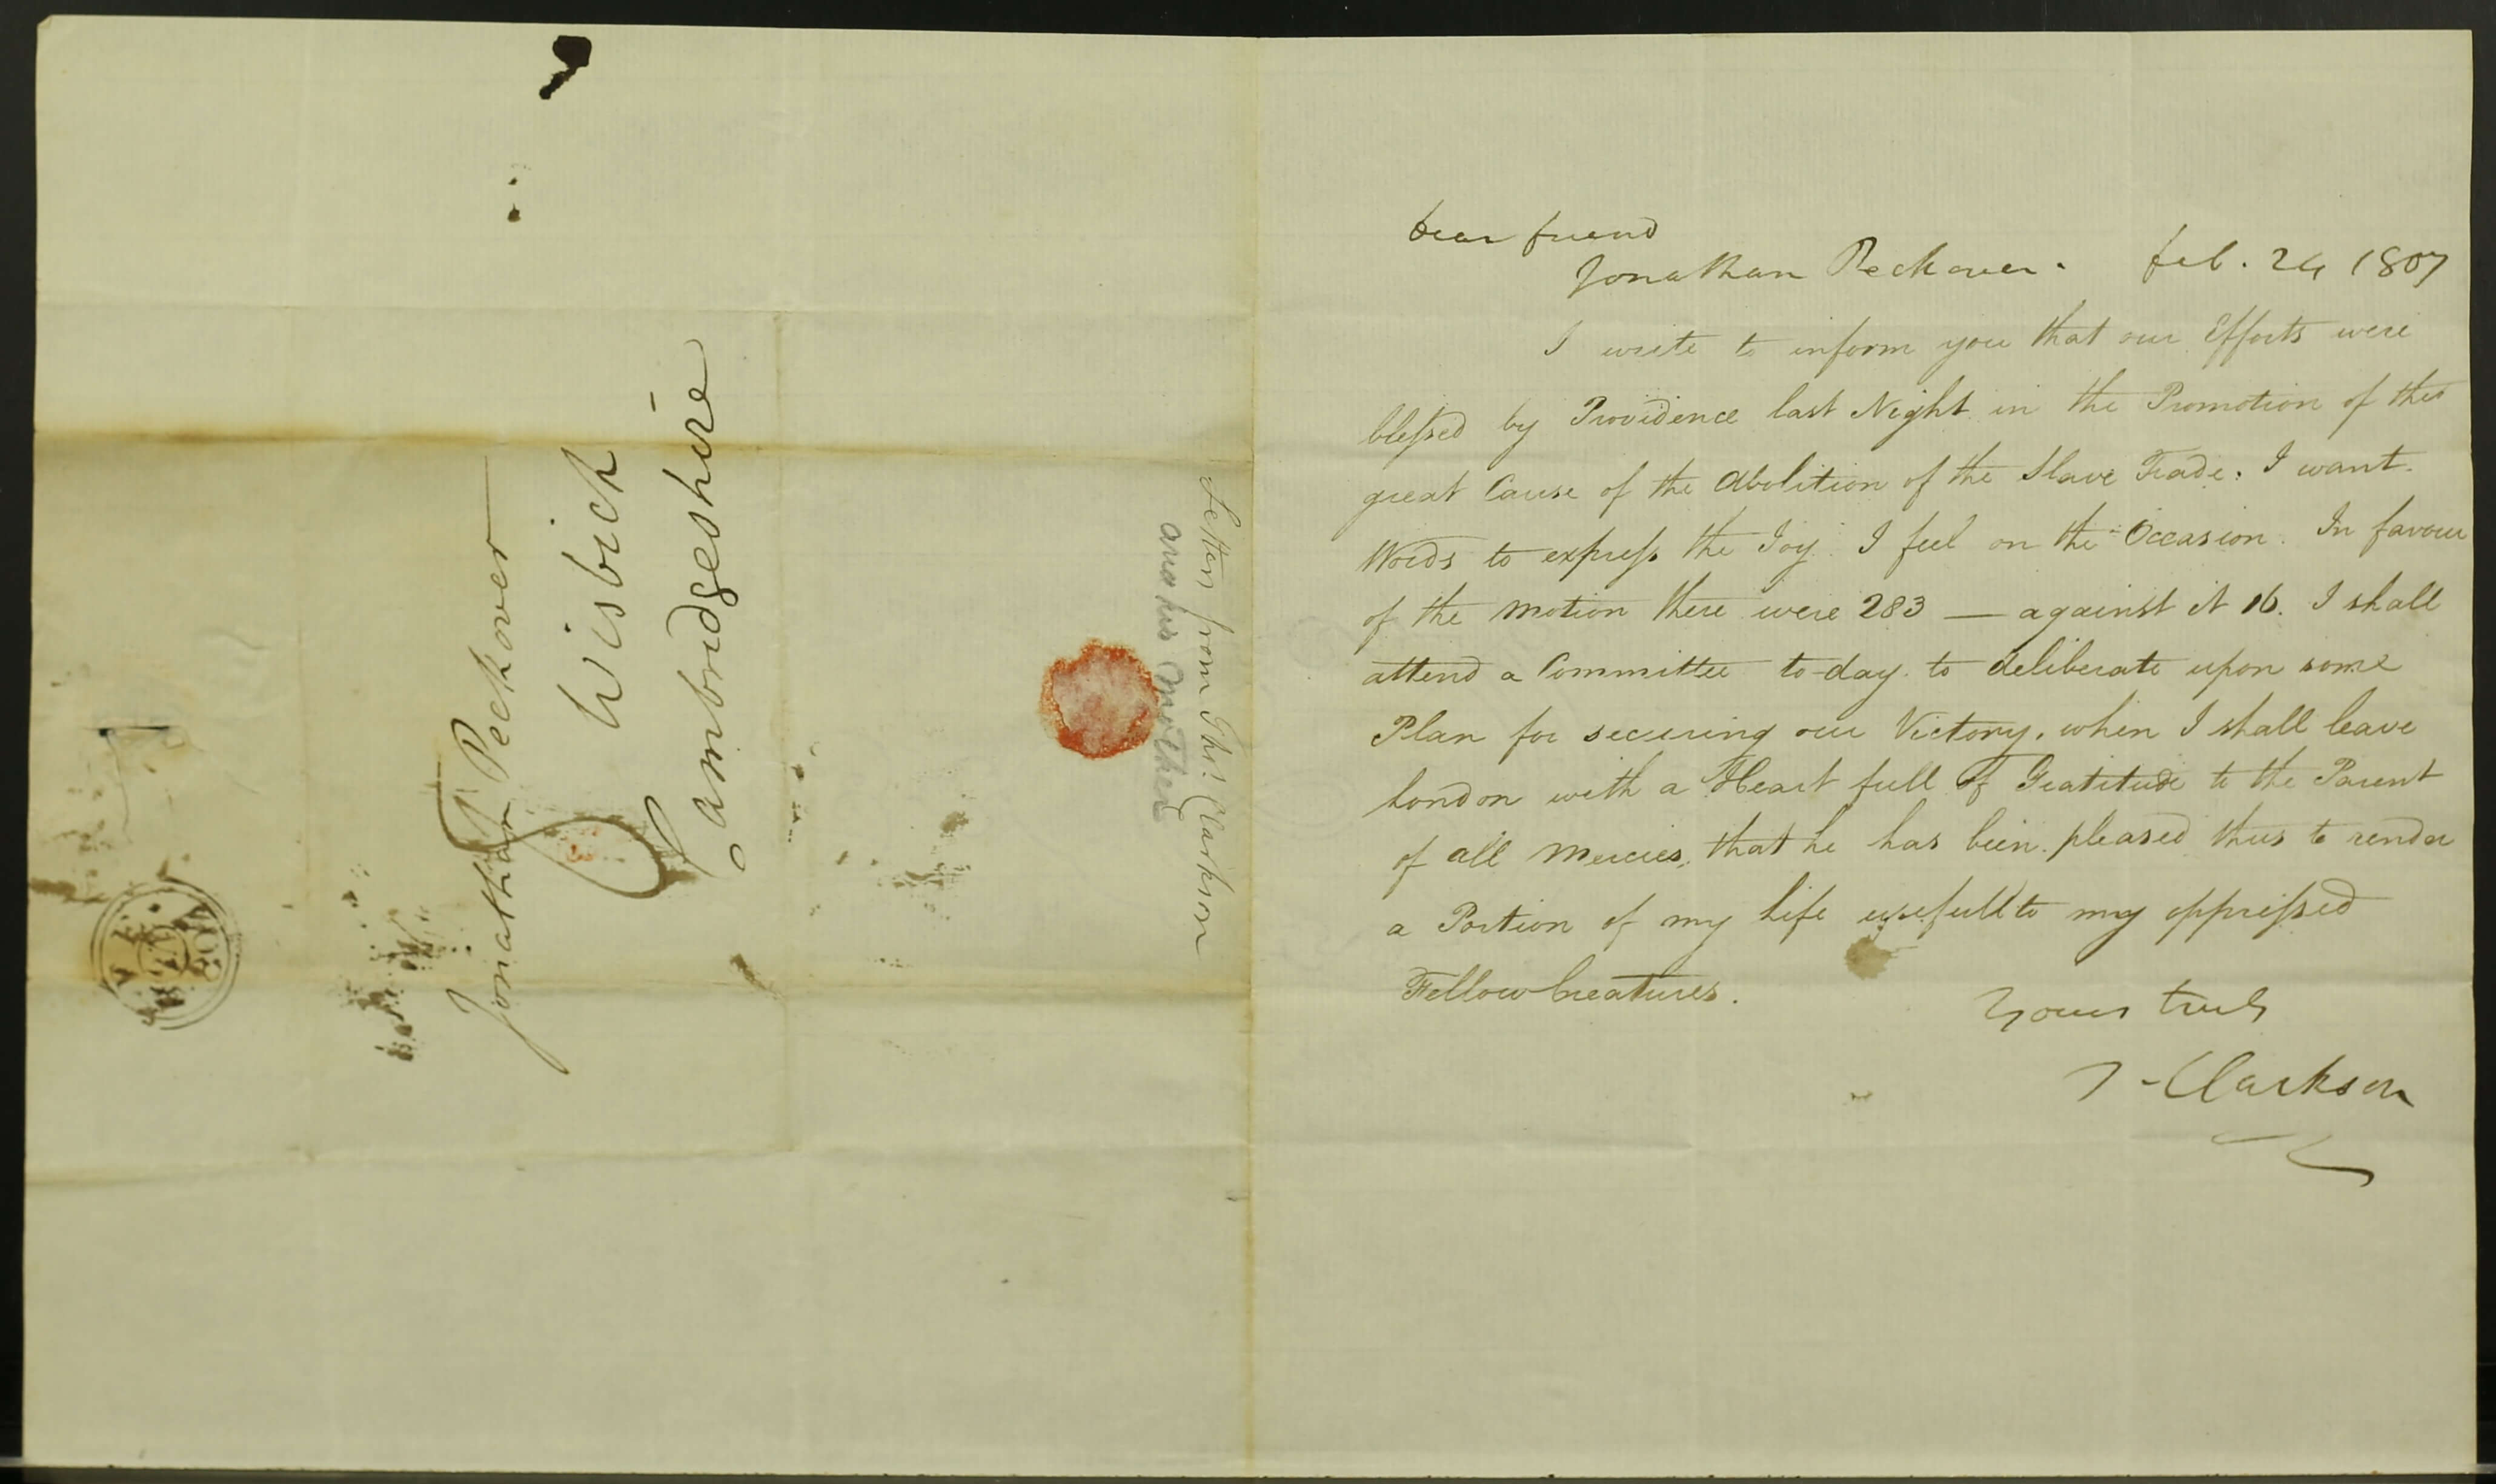 Jonathan Peckover
Wisbich
Cambridgeshire
Letter from Thos. Clarkson
and his Mother
Dear friend
Jonathan Peckover. feb. 24 1807
I write to inform you that our Efforts were
blessed by Providence last Night in the Promotion of this
great Cause of the Abolition of the Slave Trade. I want
Words to express the Joy I feel on the Occasion. In favour
of the Motion there were 283 — against it 16. I shall
attend a Committee to-day to deliberate upon some
Plan for securing our Victory, when I shall leave
London with a Heart full of Gratitude to the Parent
of all Mercies, that he has been pleased thus to render
a Portion of my Life usefull to my oppressed
Fellow Creatures.
Yours truly
T-Clarkson